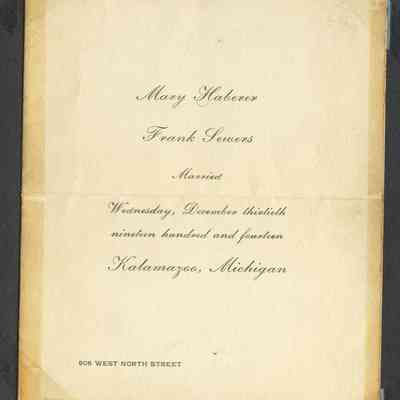 Mary Haberer
Frank Sewers
Married
Wednesday, December thirtieth
nineteen hundred and fourteen
Kalamazoo, Michigan
906 WEST NORTH STREET